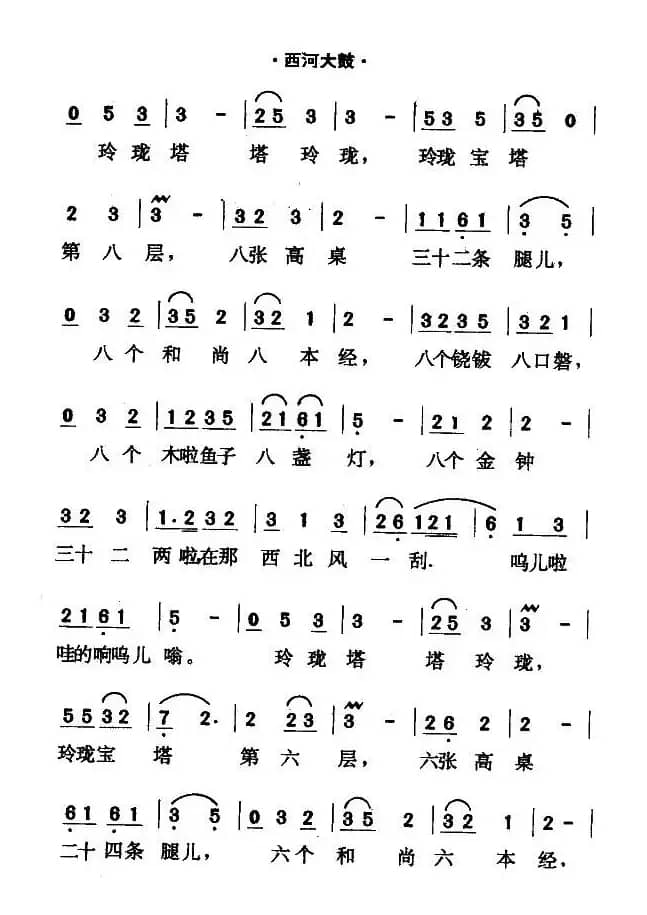 ·西河大鼓·
0 5 3 | 3 - | 2 5 3 | 3 - | 5 3 5 | 3 5 0 |
玲珑塔 塔玲珑，玲珑宝塔
2 3 | 3 - | 3 2 3 | 2 - | 1 1 6 1 | 3 5 |
第八层，八张高桌 三十二条腿儿，
0 3 2 | 3 5 2 | 3 2 1 | 2 - | 3 2 3 5 | 3 2 1 |
八个和尚八本经，八个铙钹八口磬，
0 3 2 | 1 2 3 5 | 2 1 6 1 | 5 - | 2 1 2 | 2 - |
八个木啦鱼子八盏灯，八个金钟
3 2 3 | 1 . 2 3 2 | 3 1 3 | 2 6 1 2 1 | 6 1 3 |
三十二两啦在那西北风一刮. 呜儿啦
2 1 6 1 | 5 - | 0 5 3 | 3 - | 2 5 3 | 3 - |
哇的响呜儿嗡。玲珑塔 塔玲珑，
5 5 3 2 | 7 2 . | 2 2 3 | 3 - | 2 6 2 | 2 - |
玲珑宝塔 第六层，六张高桌
6 1 6 1 | 3 5 | 0 3 2 | 3 5 2 | 3 2 1 | 2 - |
二十四条腿儿，六个和尚六本经，